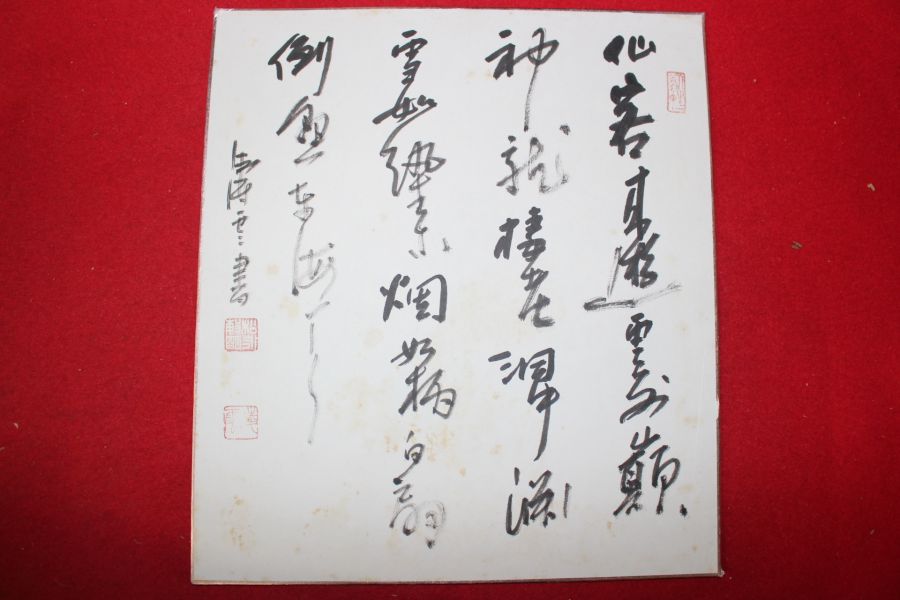 仙客来遊雲外巓
神龍棲老洞中渕
雪如紈素烟如柄白扇
倒懸東海天
濤雲書